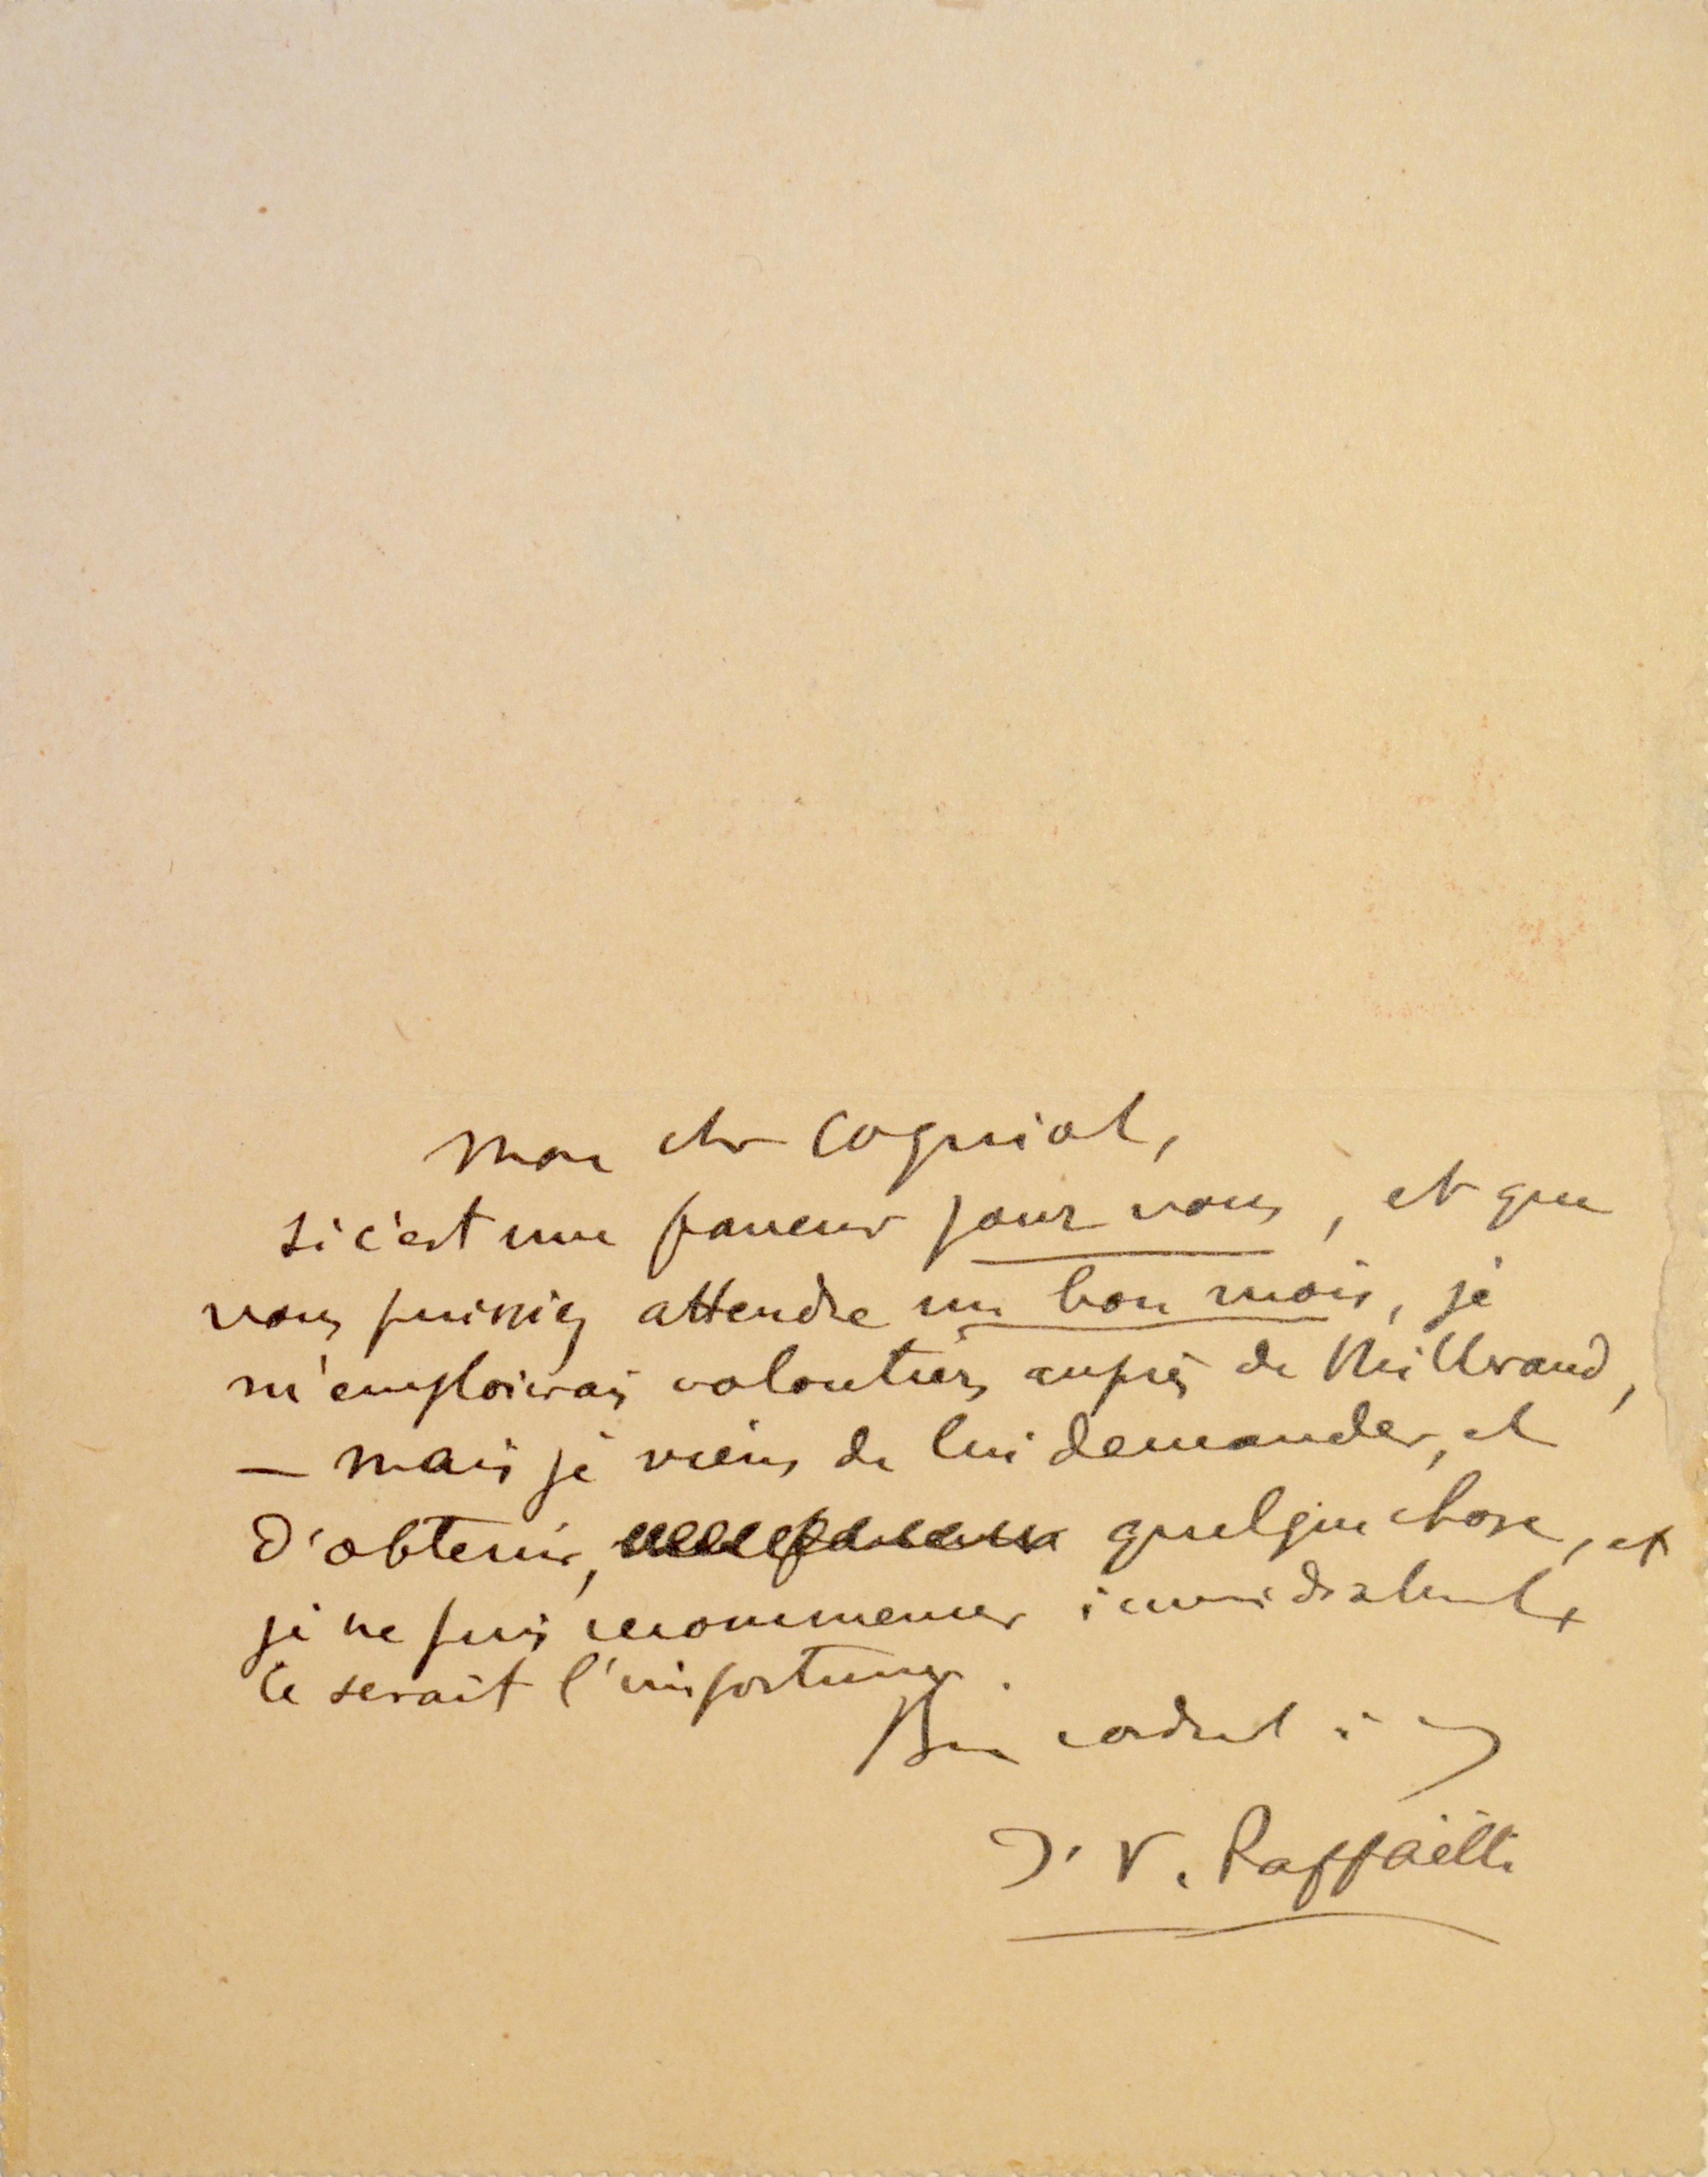 Mon cher Cogniat,
si c'est une faveur pour vous, et que
vous puissiez attendre un bon mois, je
m'emploierais volontiers auprès de Millerand,
— mais je viens de lui demander, et
d'obtenir, quelque chose, et
je ne puis recommencer immédiatement
ce serait l'importuner.
Bien cordial
J. F. Raffaëlli